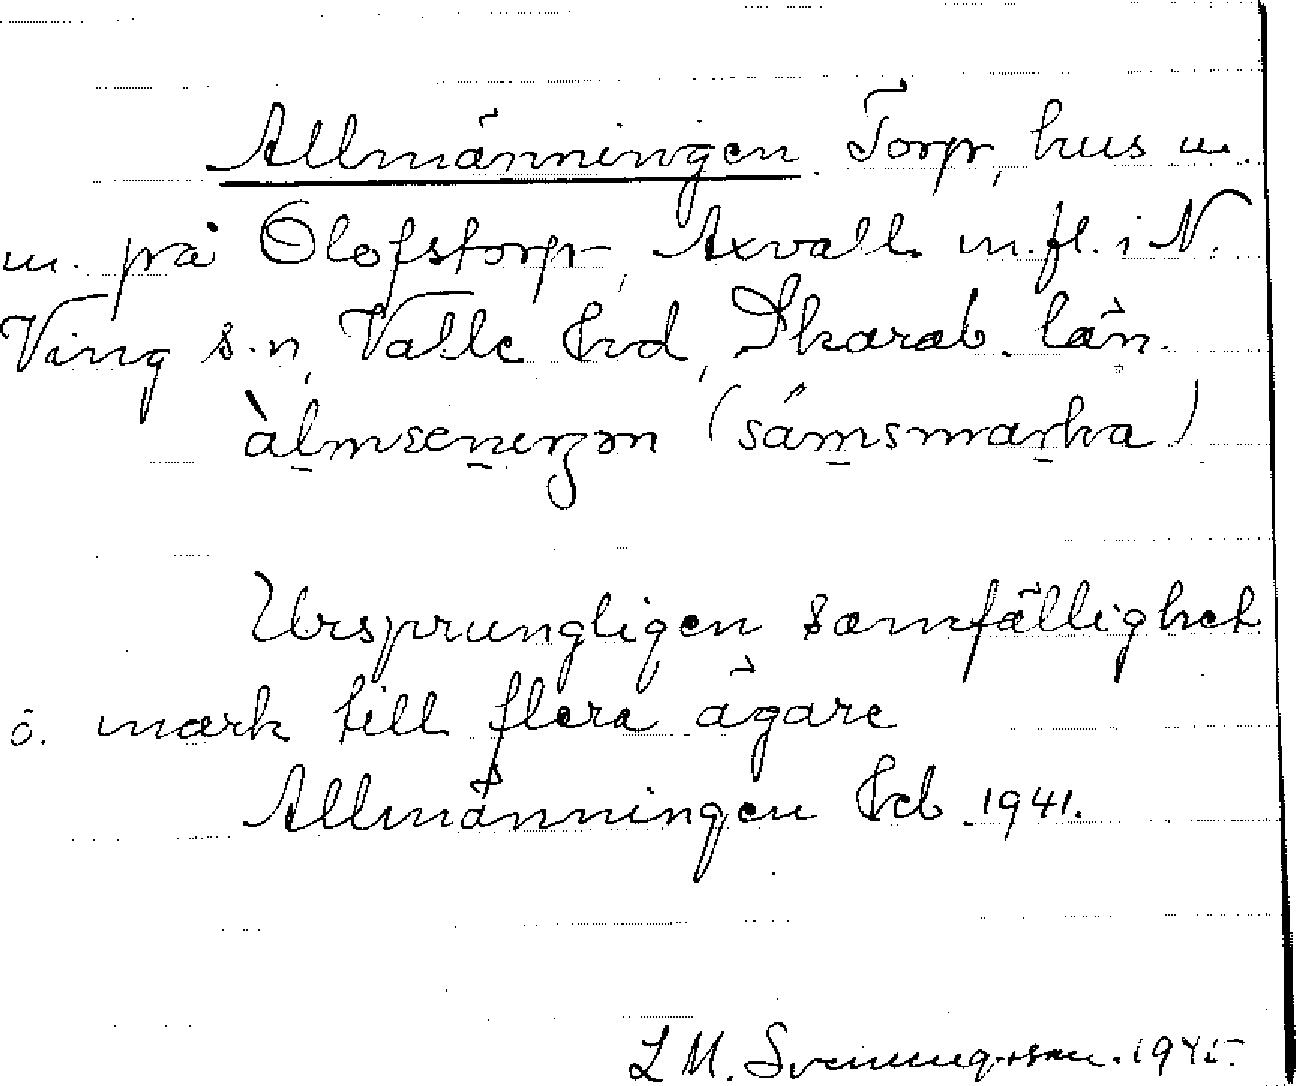 Allmänningen Torp, hus m.
m. på Olofstorp, Axvall m.fl. i N.
Ving s.n, Valle hrd, Skarab. län.
àlmsenеŋɜn (sámsmarka)
Ursprungligen samfällighet
o. mark till flera ägare
Allmänningen Krb 1941.
L M. Svenungsson. 1945